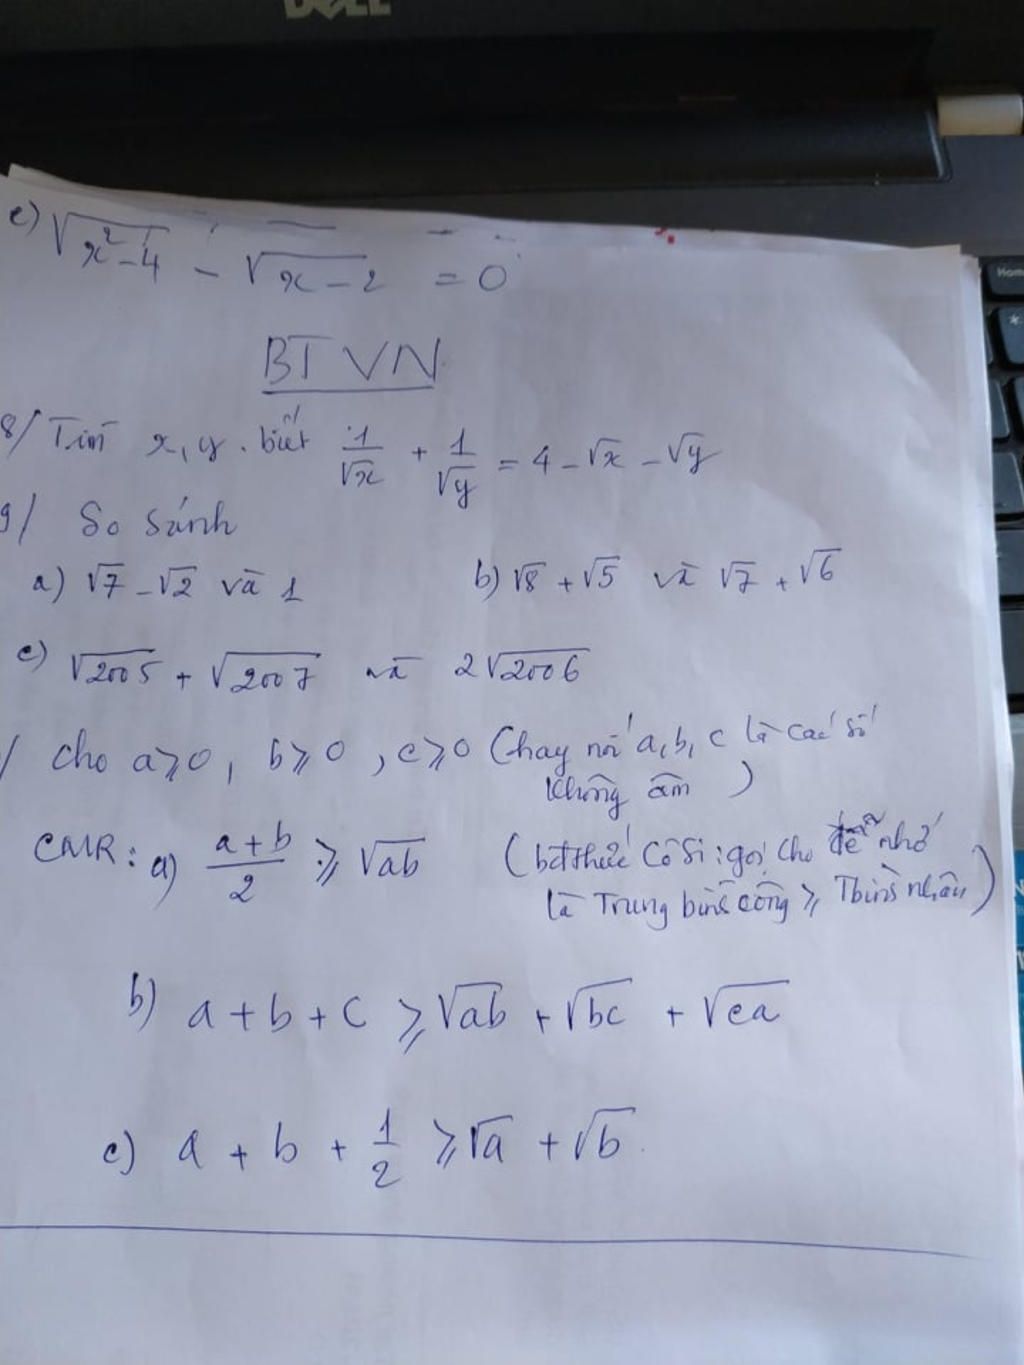 DELL
c) √(x²-4) - √(x-2) = 0
BTVN
8/ Tìm x, y. biết 1/√x + 1/√y = 4 - √x - √y
9/ So sánh
a) √7 - √2 và 1
b) √8 + √5 và √7 + √6
c) √2005 + √2007 và 2√2006
/ cho a ⩾ 0, b ⩾ 0, c ⩾ 0 (hay nói a, b, c là các số
không âm)
CMR: a) (a+b)/2 ⩾ √ab
(bđthức Cô Si: gọi cho dễ nhớ
là Trung bình cộng ⩾ Tbình nhân)
b) a + b + c ⩾ √ab + √bc + √ca
c) a + b + 1/2 ⩾ √a + √b
Home